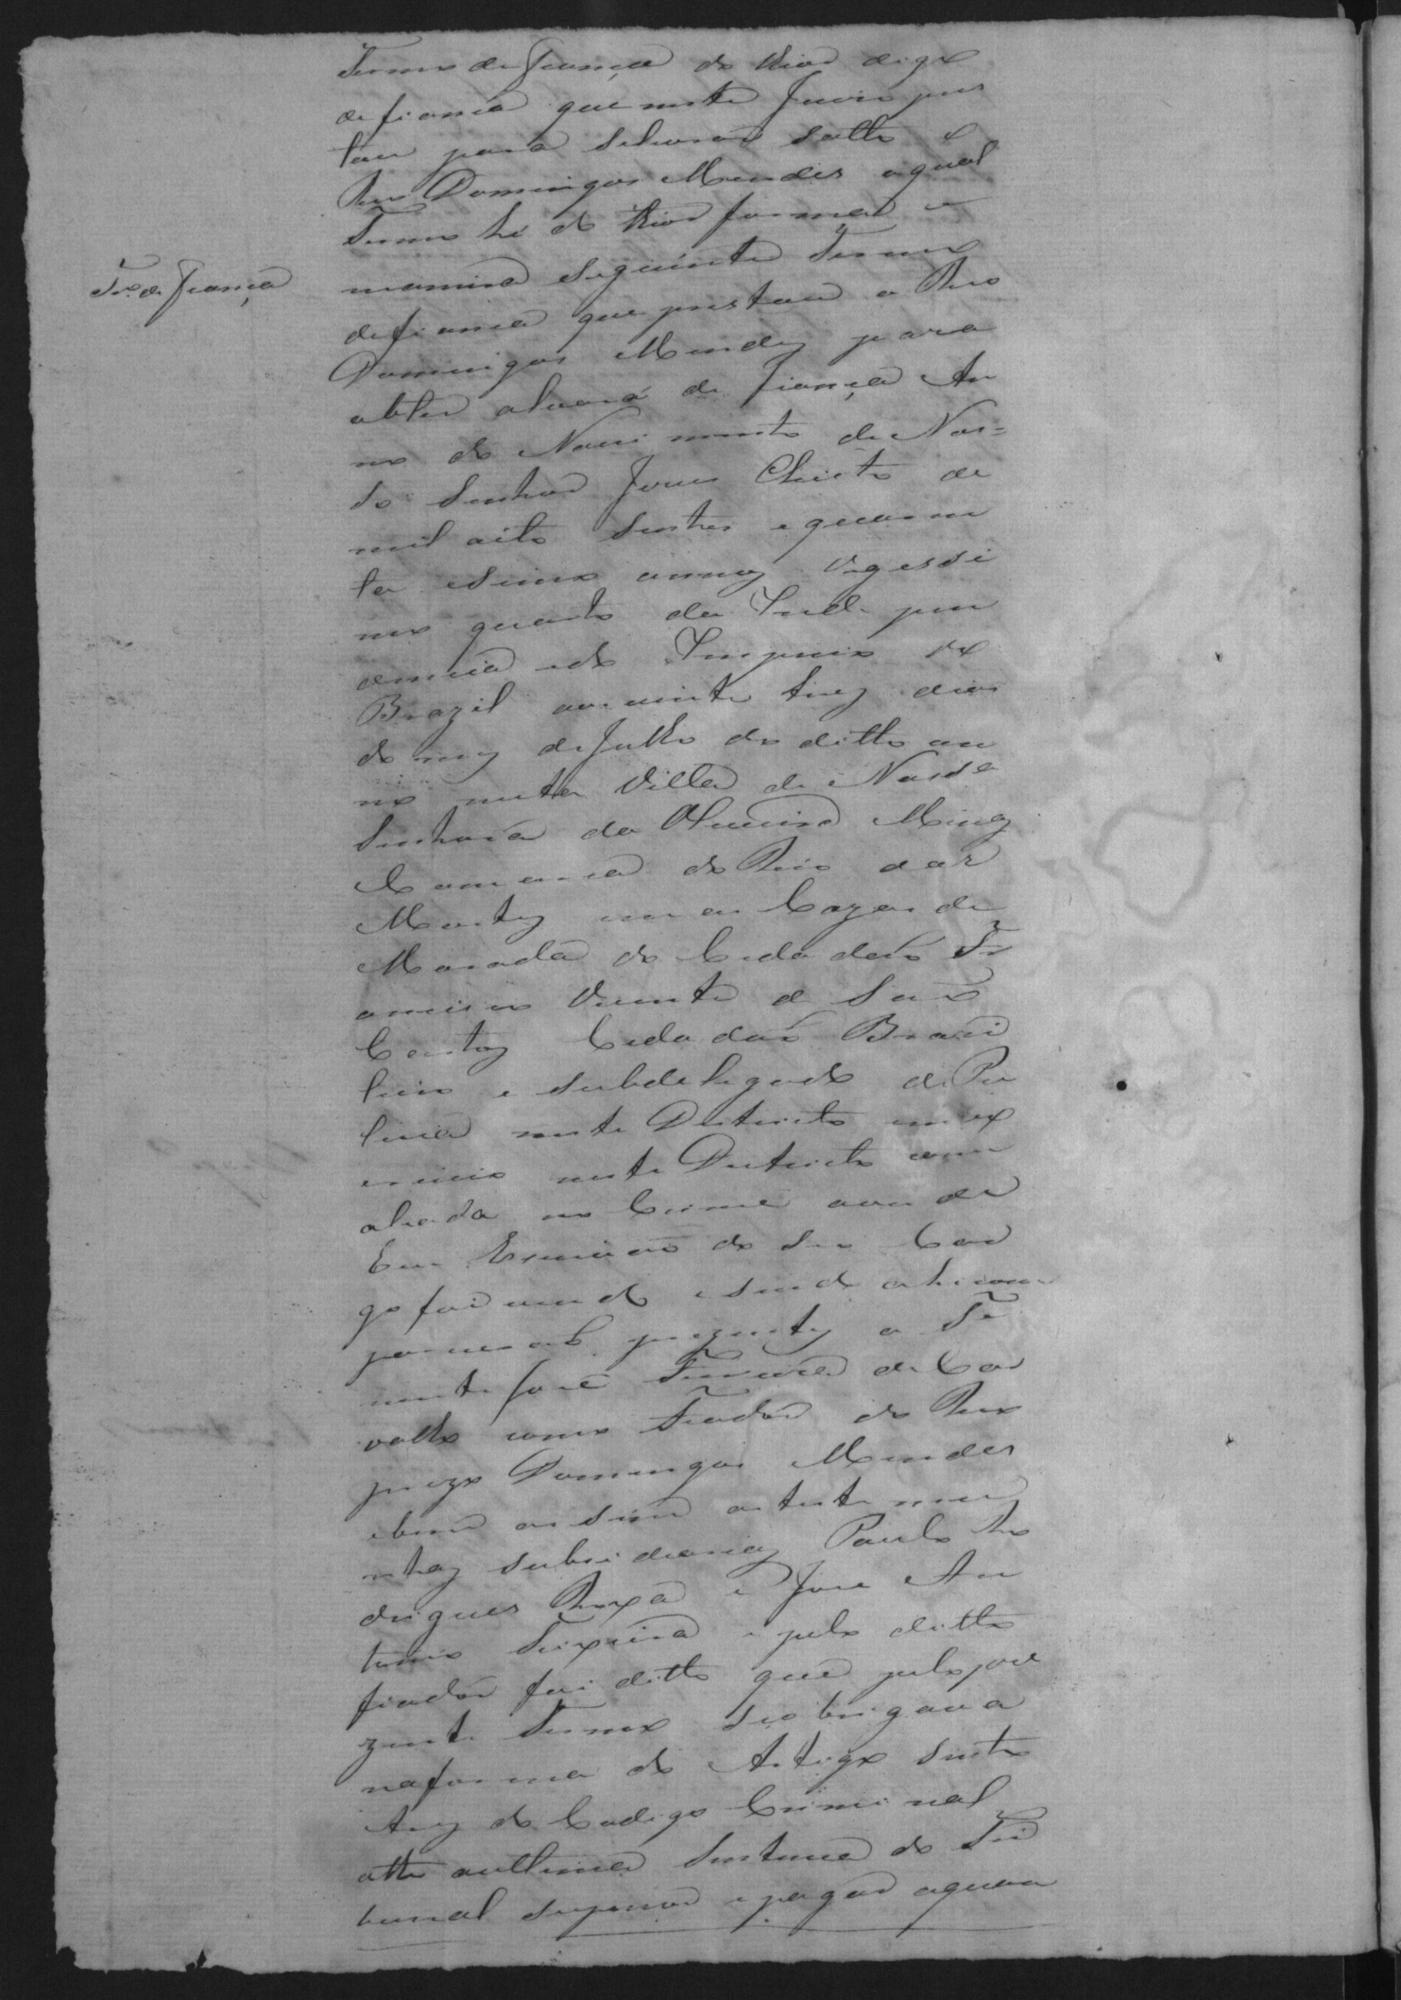 Termo de fiança do theor digo
de fiança que neste Juizo pres
tou para se livrar solto o
Reo Domingos Mendes o qual
Termo he do theor forma e
Tr.o de fiança
maneira seguinte Termo
de fiança que prestou o Reo
Domingos Mendes para
obter alvará de fiança An
no do Nasci mento de Nos=
so Senhor Jesus Christo de
mil oito sentos e quaren
ta e sinco annos vigessi
mo quarto da Inde pen
dencia e do Imperio do
Brazil aos vinte trez dias
do mez de Julho do ditto an
no nesta Villa de Nossa
Senhora da Oliveira Minas
Comarca do Rio das
Mortes em as Cazas de
Morada do Cida dão Fr
ancisco Vicente
Cida dão Brazi
leiro e Subdelegado de Po
licia neste Destricto em ex
ercicio neste Destricto com
alsada no Crime aonde
Eu Escrivão do Seu Car
go fui vindo e sendo ahi com
parecerão prezentes o Te
nente José Ferreira de Car
valho como fiador do Reo
prezo Domingos Mendes
e bem assim as teste mu
nhas subsidiarias Paulo Ro
drigues Roza e Jose An
tonio Teixeira e pelo ditto
fiador foi ditto que pelo pre
zente Termo se obrigava
na forma do Artigo sento
trez do Codigo Criminal
athe aultima Sentença do Tri
bunal Superior e pagar aquan